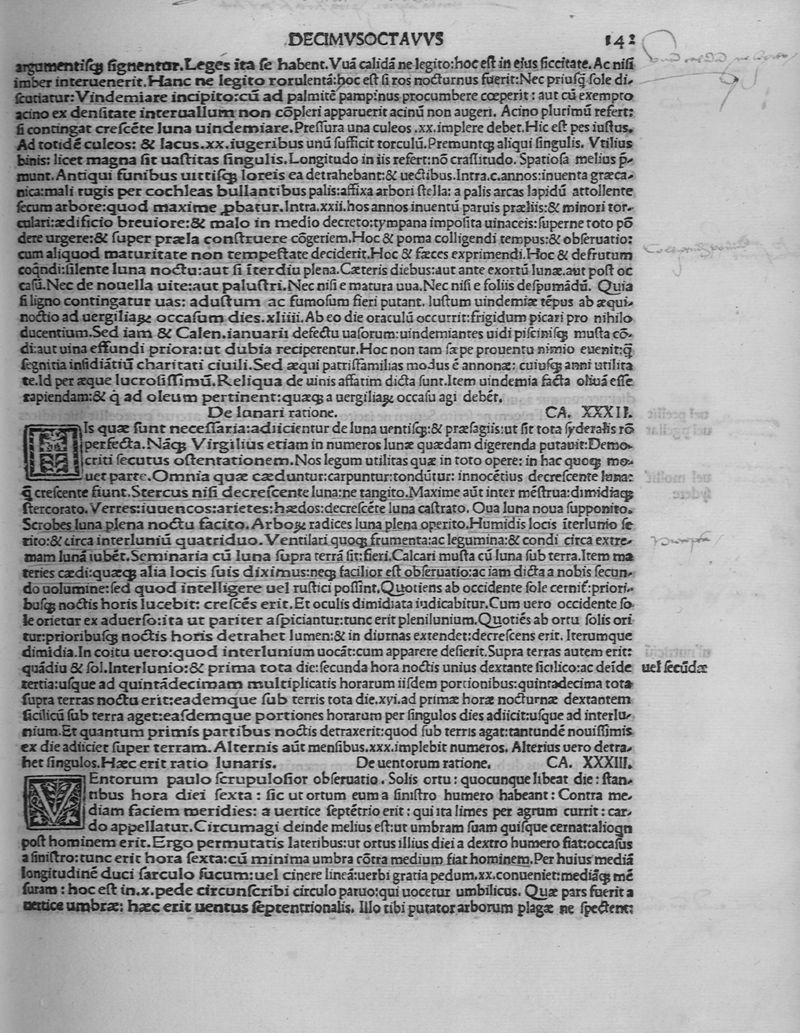 DECIMVSOCTAVVS 142
argumentisq; signentur. Leges ita se habent. Vuā calidā ne legito: hoc est in ejus siccitate. Ac nisi
imber interuenerit. Hanc ne legito rorulentā: hoc est si ros nocturnus fuerit: Nec priusq̄ sole di-
scutiatur: Vindemiare incipito: cū ad palmitē pampinus procumbere cœperit: aut cū exempto
acino ex densitate interuallum non cōpleri apparuerit acinū non augeri. Acino plurimū refert:
si contingat crescēte luna uindemiare. Pressura una culeos .xx. implere debet. Hic est pes iustus.
Ad totidē culeos: & lacus .xx. iugeribus unū sufficit torculū. Premuntq; aliqui singulis. Vtilius
binis: licet magna sit uastitas singulis. Longitudo in iis refert: nō crassitudo. Spatiosa melius p̄-
munt. Antiqui funibus uittisq; loreis ea detrahebant: & uectibus. Intra .c. annos: inuenta græca-
nica: mali rugis per cochleas bullantibus palis: affixa arbori stella: a palis arcas lapidū attollente
secum arbore: quod maxime ꝓbatur. Intra .xxii. hos annos inuentū paruis præliis: & minori tor-
culari: ædificio breuiore: & malo in medio decreto: tympana imposita uinaceis: superne toto pō
dere urgere: & super præla construere cōgeriem. Hoc & poma colligendi tempus: & obseruatio:
cum aliquod maturitate non tempestate deciderit. Hoc & fæces exprimendi. Hoc & defrutum
coq̄ndi: silente luna noctu: aut si īterdiu plena. Cæteris diebus: aut ante exortū lunæ. aut post oc
casū. Nec de nouella uite: aut palustri. Nec nisi e matura uua. Nec nisi e foliis despumādū. Quia
si ligno contingatur uas: adustum ac fumosum fieri putant. Iustum uindemiæ tēpus ab æqui-
noctio ad uergiliaꝝ occasum dies .xliiii. Ab eo die oraculū occurrit: frigidum picari pro nihilo
ducentium. Sed iam & Calen. ianuarii defectu uasorum: uindemiantes uidi piscinisq; musta cō-
di: aut uina effundi priora: ut dubia reciperentur. Hoc non tam sæpe prouentu nimio euenit: q̄
segnitia insidiātiū charitati ciuili. Sed æqui patrisfamilias modus ē annonæ: cuiusq; anni utilita
te. Id per æque lucrosissimū. Reliqua de uinis affatim dicta sunt. Item uindemia facta oliuā esse
rapiendam: & q̄ ad oleum pertinent: quæq; a uergiliaꝝ occasu agi debēt.
De lunari ratione. CA. XXXII.
HIs quæ sunt necessaria: adiicientur de luna uentisq; & præsagiis: ut sit tota syderalis rō
perfecta. Nāq; Virgilius etiam in numeros lunæ quædam digerenda putauit: Demo-
criti secutus ostentationem. Nos legum utilitas quæ in toto opere: in hac quoq; mo-
uet parte. Omnia quæ cæduntur: carpuntur: tondūtur: innocētius decrescente luna:
q̄ crescente fiunt. Stercus nisi decrescente luna: ne tangito. Maxime aūt inter mēstrua: dimidiaq;
stercorato. Verres: iuuencos: arietes: hædos: decrescēte luna castrato. Oua luna noua supponito.
Scrobes luna plena noctu facito. Arboꝝ radices luna plena operito. Humidis locis īterlunio se
rito: & circa interluniū quatriduo. Ventilari quoq; frumenta: ac legumina: & condi circa extre-
mam lunā iubēt. Seminaria cū luna supra terrā sit: fieri. Calcari musta cū luna sub terra. Item ma
teries cædi: quæq; alia locis suis diximus: neq; facilior est obseruatio: ac iam dicta a nobis secun-
do uolumine: sed quod intelligere uel rustici possint. Quotiens ab occidente sole cerniť: priori-
busq; noctis horis lucebit: crescēs erit. Et oculis dimidiata iudicabitur. Cum uero occidente so-
le orietur ex aduerso: ita ut pariter aspiciantur: tunc erit plenilunium. Quotiēs ab ortu solis ori
tur: prioribusq; noctis horis detrahet lumen: & in diurnas extendet: decrescens erit. Iterumque
dimidia. In coitu uero: quod interlunium uocāt: cum apparere desierit. Supra terras autem erit:
quādiu & sol. Interlunio: & prima tota die: secunda hora noctis unius dextante sicilico: ac deīde uel secūdæ
tertia: usque ad quintādecimam multiplicatis horarum iisdem portionibus: quintadecima tota
supra terras noctu erit: eademque sub terris tota die. xvi. ad primæ horæ nocturnæ dextantem
sicilicū sub terra aget: easdemque portiones horarum per singulos dies adiicit: usque ad interlu-
nium. Et quantum primis partibus noctis detraxerit: quod sub terris agat: tantundē nouissimis
ex die adiiciet super terram. Alternis aūt mensibus .xxx. implebit numeros. Alterius uero detra-
het singulos. Hæc erit ratio lunaris. De uentorum ratione. CA. XXXIII.
VEntorum paulo scrupulosior obseruatio. Solis ortu: quocunque libeat die: stan-
tibus hora diei sexta: sic ut ortum eum a sinistro humero habeant: Contra me-
diam faciem meridies: a uertice septētrio erit: qui ita limes per agrum currit: car-
do appellatur. Circumagi deinde melius est: ut umbram suam quisque cernat: alioqn
post hominem erit. Ergo permutatis lateribus: ut ortus illius diei a dextro humero fiat: occasus
a sinistro: tunc erit hora sexta: cū minima umbra cōtra medium fiat hominem. Per huius mediā
longitudinē duci sarculo sucum: uel cinere lineā: uerbi gratia pedum .xx. conueniet: mediāq; mē
suram: hoc est in .x. pede circunscribi circulo paruo: qui uocetur umbilicus. Quæ pars fuerit a
uertice umbræ: hæc erit uentus septentrionalis. Illo tibi putator arborum plagæ ne spectent: